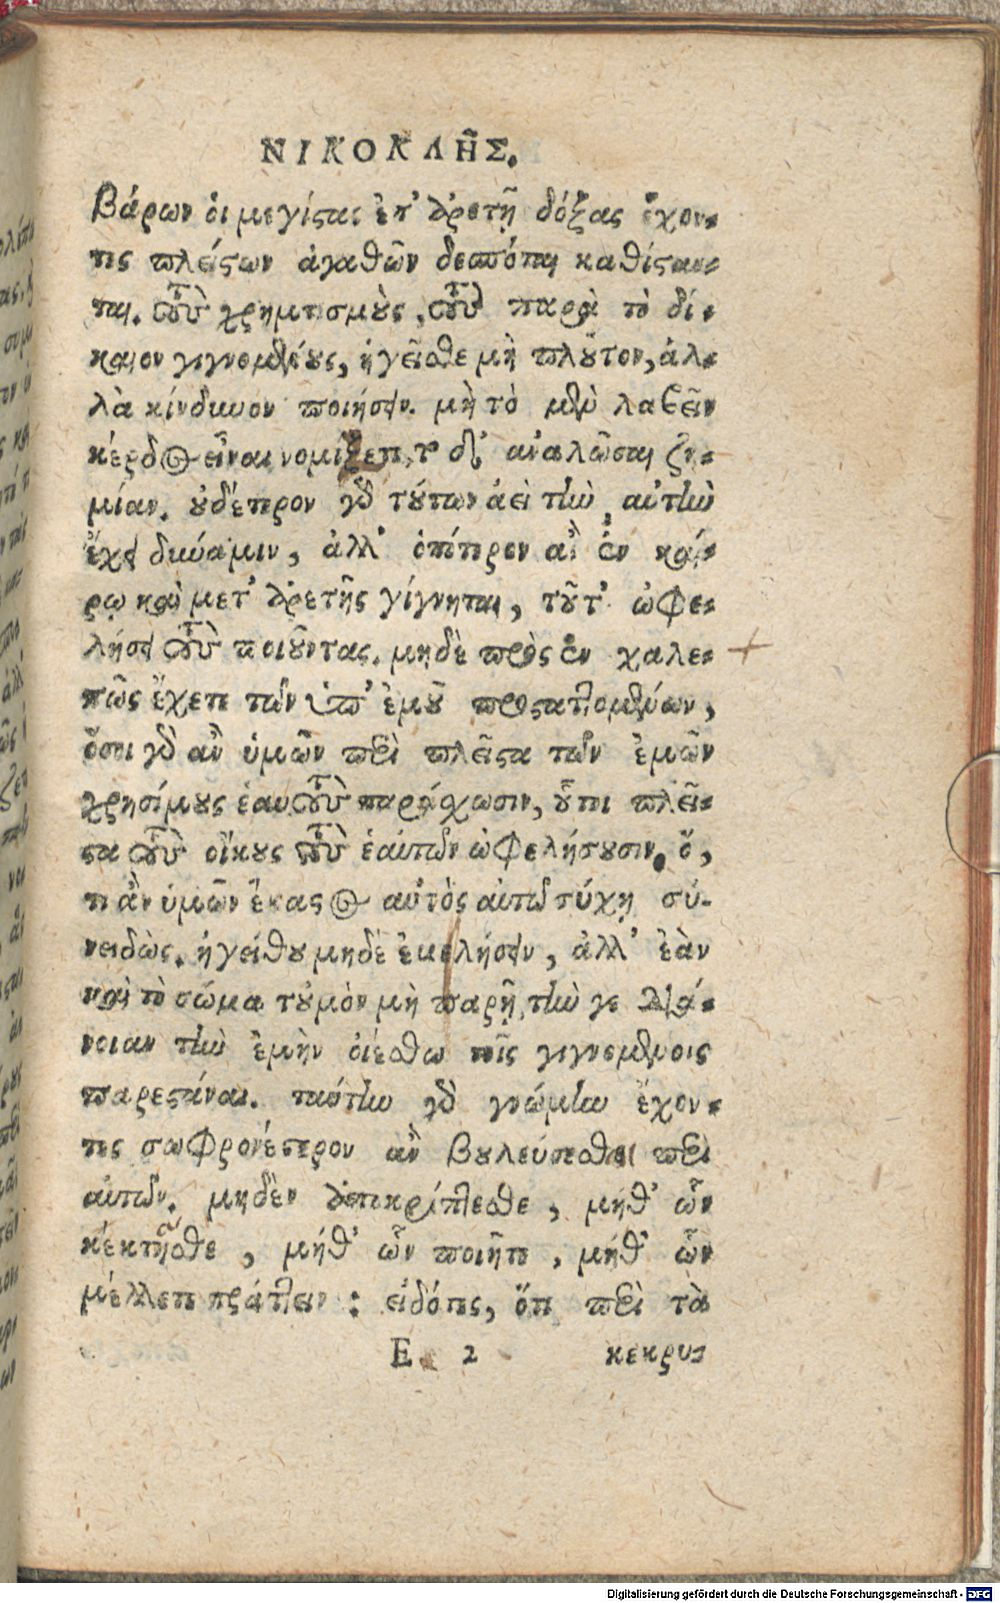 ΝΙΚΟΚΛΗ͂Σ.
βάρων οἱ μεγίστας ἐπ' ἀρετῇ δόξας ἔχον-
τες πλείστων ἀγαθῶν δεσπόται καθίσταν-
ται. τοὺς χρηματισμοὺς, τοὺς παρὰ τὸ δί-
καιον γιγνομένους, ἡγεῖσθε μὴ πλοῦτον, ἀλ-
λὰ κίνδυνον ποιήσειν. μὴ τὸ μὲν λαβεῖν
κέρδος εἶναι νομίζετε, τὸ δ' ἀναλῶσαι ζη-
μίαν. οὐδέτερον γὰρ τούτων ἀεὶ τὴν αὐτὴν
ἔχει δύναμιν, ἀλλ' ὁπότερον ἂν ἐν και-
ρῷ καὶ μετ' ἀρετῆς γίγνηται, τοῦτ' ὠφε-
λήσει τοὺς ποιοῦντας. μηδὲ πρὸς ἓν χαλε-
πῶς ἔχετε τῶν ὑπ' ἐμοῦ προσταττομένων,
ὅσοι γὰρ ἂν ὑμῶν περὶ πλεῖστα τῶν ἐμῶν
χρησίμους ἑαυτοὺς παράσχωσιν, οὗτοι πλεῖ-
στα τοὺς οἴκους τοὺς ἑαυτῶν ὠφελήσουσιν. ὅ,
τι ἂν ὑμῶν ἕκαστος αὐτὸς αὑτῷ τύχῃ συ-
νειδὼς, ἡγείσθω μηδὲ ἐμὲ λήσειν, ἀλλ' ἐὰν
καὶ τὸ σῶμα τοὐμὸν μὴ παρῇ, τήν γε διά-
νοιαν τὴν ἐμὴν οἰέσθω τοῖς γιγνομένοις
παρεστάναι. ταύτην γὰρ γνώμην ἔχον-
τες σωφρονέστερον ἂν βουλεύσεσθαι περὶ
αὐτῶν. μηδὲν ἀποκρύπτεσθε, μήθ' ὧν
κέκτησθε, μήθ' ὧν ποιῆτε, μήθ' ὧν
μέλλετε πράττειν: εἰδότες, ὅτι περὶ τὰ
E 2 κεκρυ-
Digitalisierung gefördert durch die Deutsche Forschungsgemeinschaft - DFG